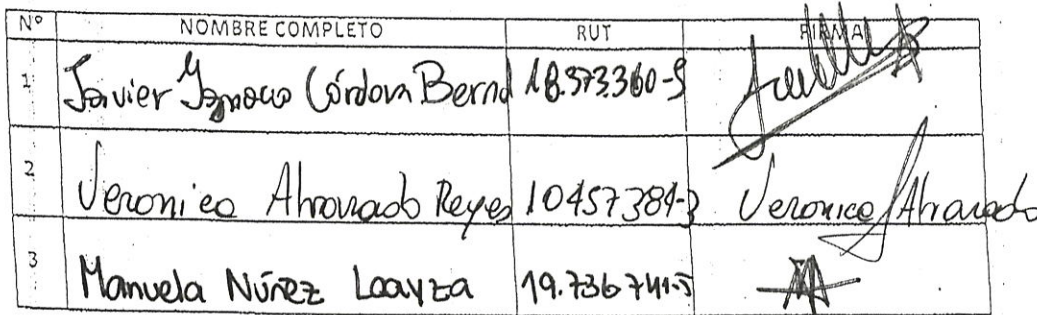 Nº NOMBRE COMPLETO RUT FIRMA
1 Javier Ignacio Córdova Bernd 18.573.360-5
2 Veronica Alvarado Reyes 10457384-3 Veronica Alvarado
3 Manuela Núñez Loayza 19.736741-5